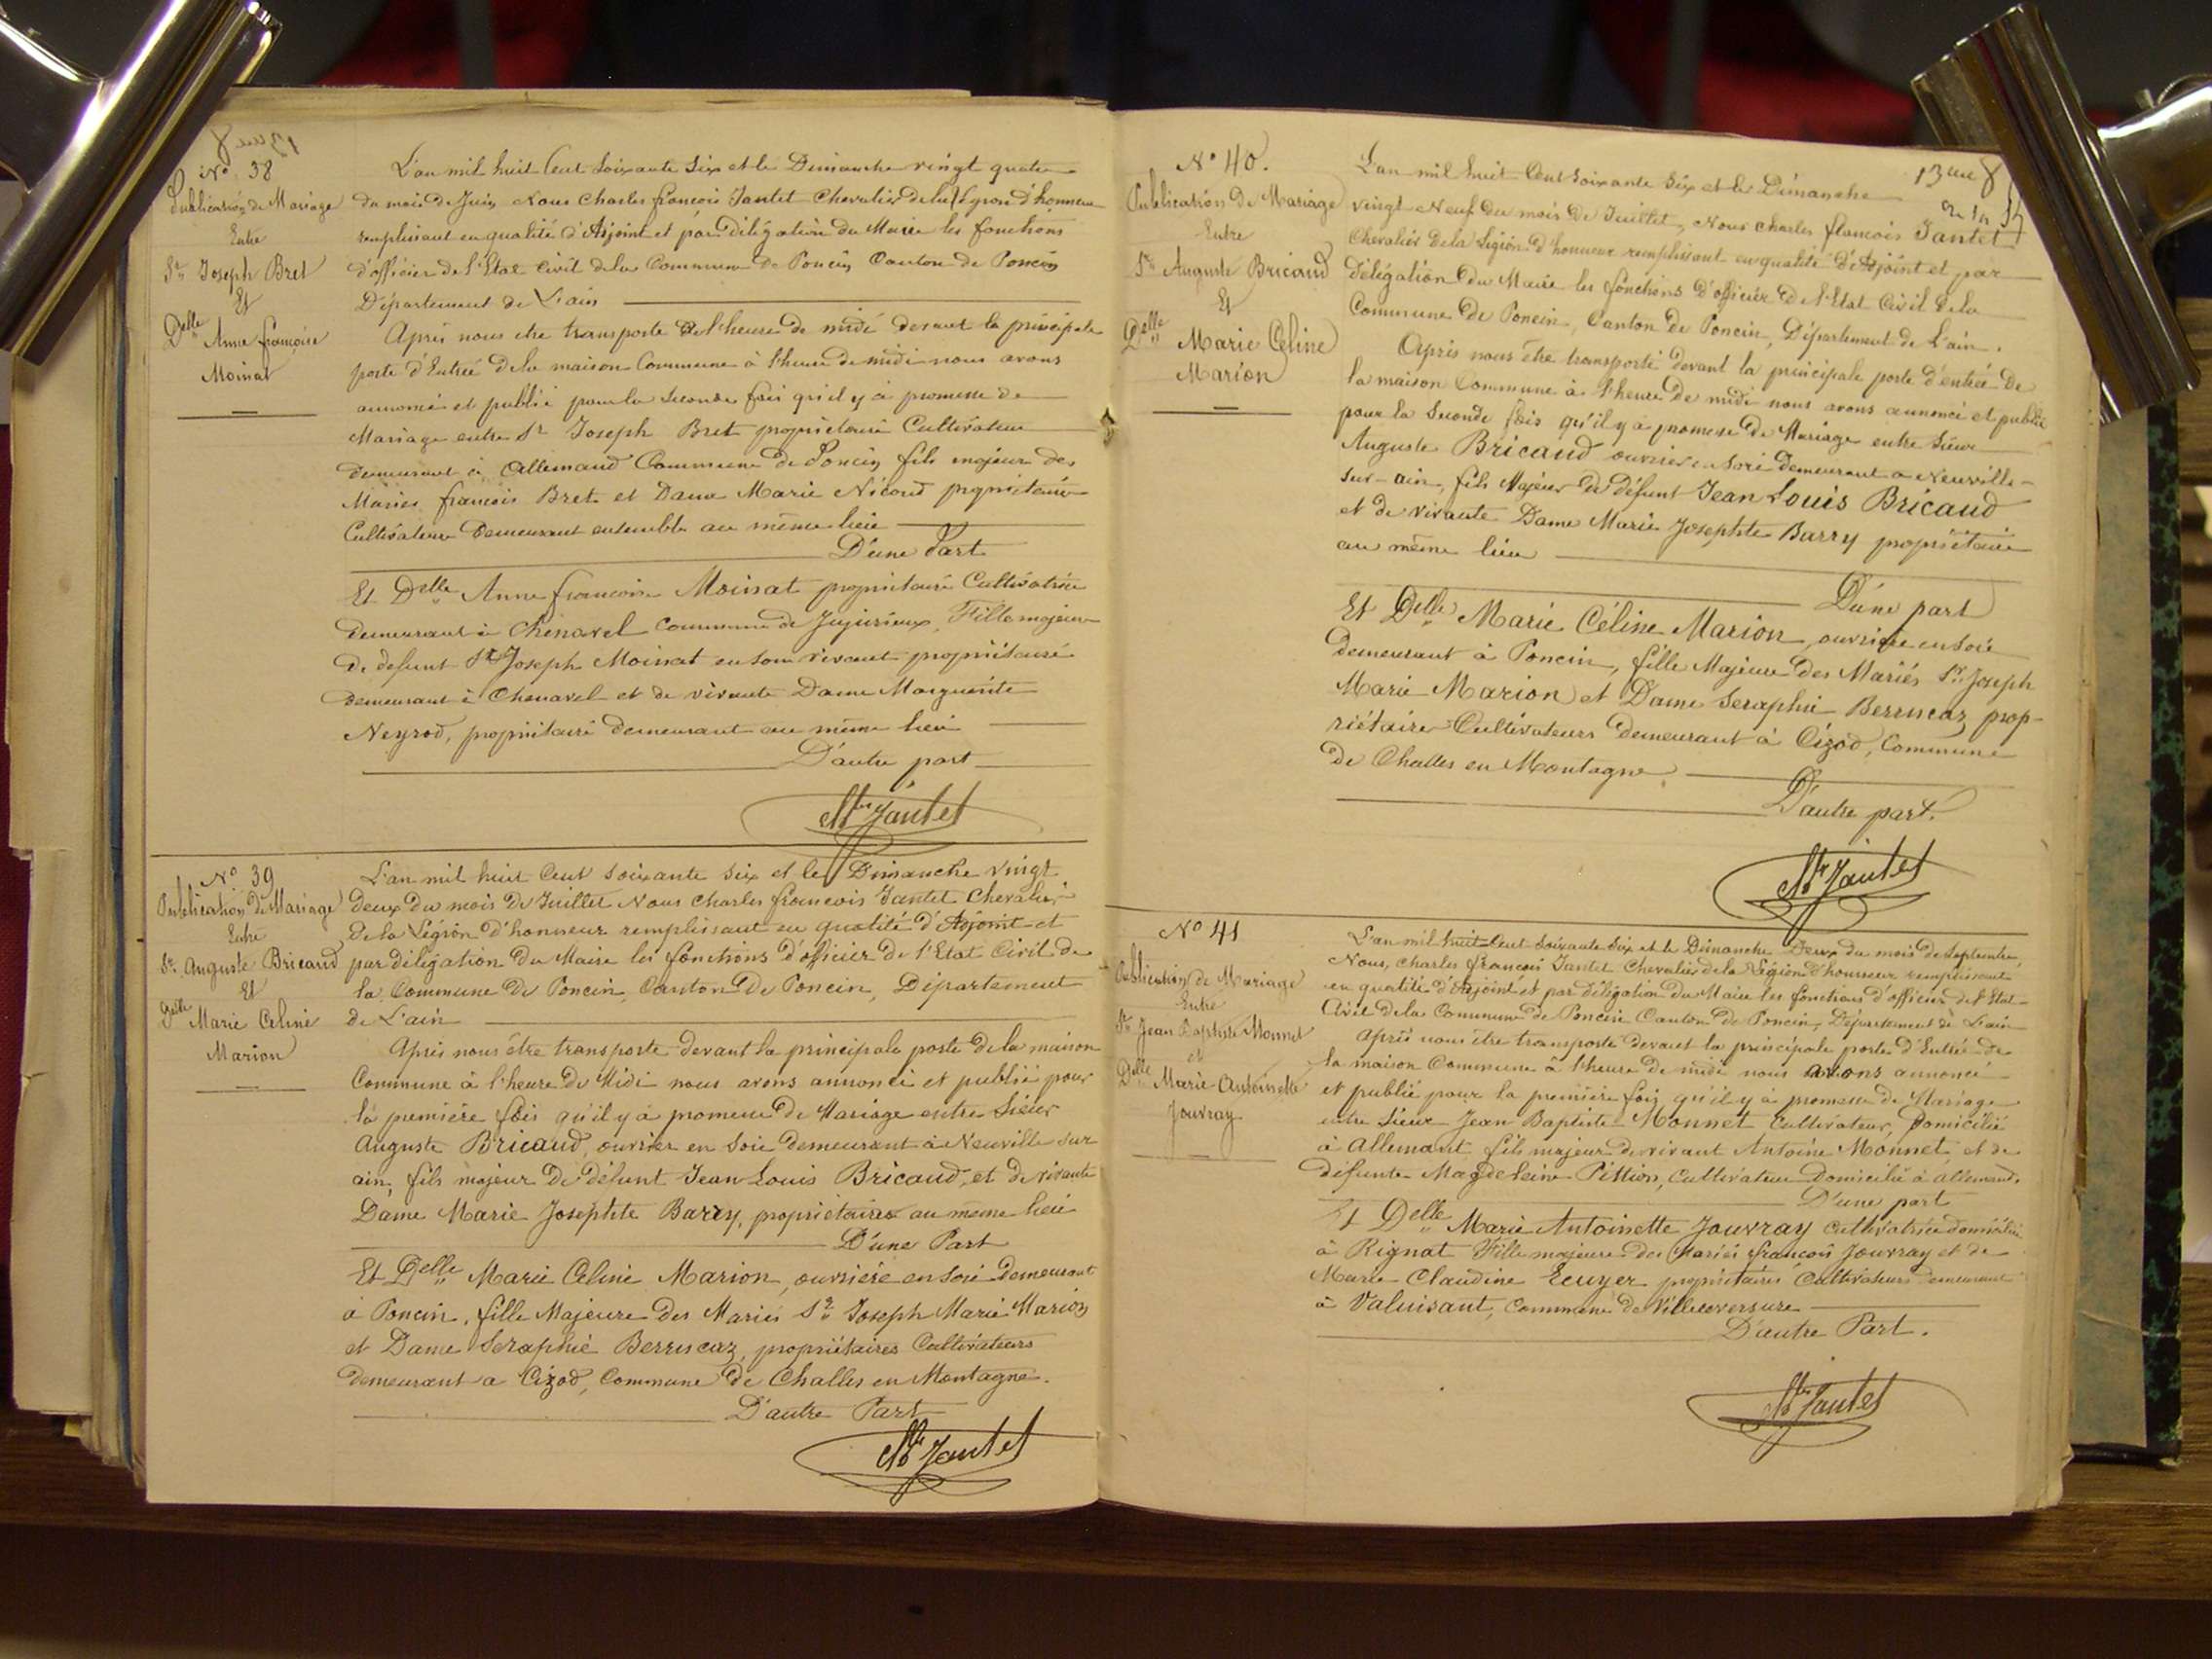 No. 38
Publication de Mariage
Entre
Sr. Joseph Bret
Et
Delle Anne françoise
Moinat
L'an mil huit Cent Soixante Six et le Dimanche vingt quatre
du mois de Juin Nous Charles françois Jantet Chevalier de la Légion d'honneur
remplissant en qualité d'Adjoint et par délégation du Maire les fonctions
d'officier de l'Etat Civil de la Commune de Poncin Canton de Poncin
Département de L'ain
Après nous être transporté à l'heure de midi devant la principale
porte d'Entrée de la maison Commune à l'heure de midi nous avons
annoncé et publié pour la seconde fois qu'il y a promesse de
Mariage entre Sr Joseph Bret propriétaire Cultivateur
demeurant à Allemand Commune de Poncin fils majeur des
Mariés françois Bret et Dame Marie Nicoud propriétaire
Cultivateur Demeurant ensemble au même lieu
D'une Part
Et Delle Anne francoise Moinat propriétaire Cultivatrice
demeurant à Chenavel Commune de Jujurieux, Fille majeure
de defunt Sr Joseph Moinat en son vivant propriétaire
demeurant à Chenavel et de vivante Dame Marguerite
Neyrod, propriétaire demeurant au même lieu
D'autre part
Jantet
No 39
Publication de Mariage
Entre
Sr. Auguste Bricaud
Et
Delle Marie Celine
Marion
L'an mil huit Cent soixante six et le Dimanche vingt
deux du mois de Juillet Nous Charles francois Jantet Chevalier
de la Légion d'honneur remplissant en qualité d'Adjoint et
par délégation du Maire les fonctions d'officier de l'Etat Civil de
la Commune de Poncin, Canton de Poncin, Département
de L'ain
Après nous être transporte devant la principale porte de la maison
Commune à l'heure de Midi nous avons annoncé et publié pour
la première fois qu'il y a promesse de Mariage entre Sieur
Auguste Bricaud, ouvrier en soie demeurant à Neuville sur
ain, fils majeur de défunt Jean Louis Bricaud, et de vivante
Dame Marie Josephte Barry, propriétaires au même lieu
D'une Part
Et Delle Marie Celine Marion, ouvrière en soie demeurant
à Poncin, fille Majeure des Mariés Sr. Joseph Marie Marion
et Dame Seraphie Berrucaz, propriétaires Cultivateurs
demeurant a Cizod, Commune de Challes en Montagne.
D'autre Part
Jantet
13me f
No 40.
Publication de Mariage
Entre
Sr. Auguste Bricaud
Et
Delle Marie Céline
Marion
L'an mil huit Cent soixante Six et le Dimanche
vingt Neuf du mois de Juillet, Nous Charles francois Jantet
Chevalier de la Légion d'honneur remplissant en qualité d'Adjoint et par
délégation du Maire les fonctions d'officier de l'Etat Civil de la
Commune de Poncin, Canton de Poncin, Département de L'ain.
Après nous être transporté devant la principale porte d'entrée de
la maison Commune à l'heure de midi nous avons annoncé et publié
pour la Seconde fois qu'il y a promesse de Mariage entre Sieur
Auguste Bricaud ouvrier en soie demeurant a Neuville-
sur-ain, fils Majeur de défunt Jean Louis Bricaud
et de vivante Dame Marie Josephte Barry propriétaire
au même lieu
D'une part
Et Delle Marie Céline Marion, ouvrière en soie
demeurant à Poncin, fille Majeure des Mariés Sr. Joseph
Marie Marion et Dame Seraphie Berrucaz prop-
riétaires Cultivateurs demeurant à Cizod, Commune
de Challes en Montagne
D'autre part.
Jantet
No 41
Publication de Mariage
Entre
Sr. Jean Baptiste Monnet
et
Delle Marie-Antoinette
Jouvray
L'an mil huit Cent soixante Six et le Dimanche Deux du mois de Septembre
Nous, Charles françois Jantet Chevalier de la Légion d'honneur remplissant
en qualité d'Adjoint et par délégation du Maire les fonctions d'officier de l'Etat
Civil de la Commune de Poncin Canton de Poncin, Département de L'ain
Après nous être transporte devant la principale porte d'Entrée de
la maison Commune à l'heure de midi nous avons annoncé
et publié pour la première fois qu'il y a promesse de Mariage
entre Sieur Jean Baptiste Monnet Cultivateur, Domicilié
à Allemant, fils majeur de vivant Antoine Monnet et de
défunte Magdeleine Pittion, Cultivateur Domicilié à allemand.
D'une part
Et Delle Marie Antoinette Jouvray Cultivatrice domiciliée
à Rignat Fille majeure des Mariés francois Jouvray et de
Marie Claudine Ecuyer propriétaires Cultivateurs demeurant
à Valuisant, Commune de Villereversure
D'autre Part.
Jantet